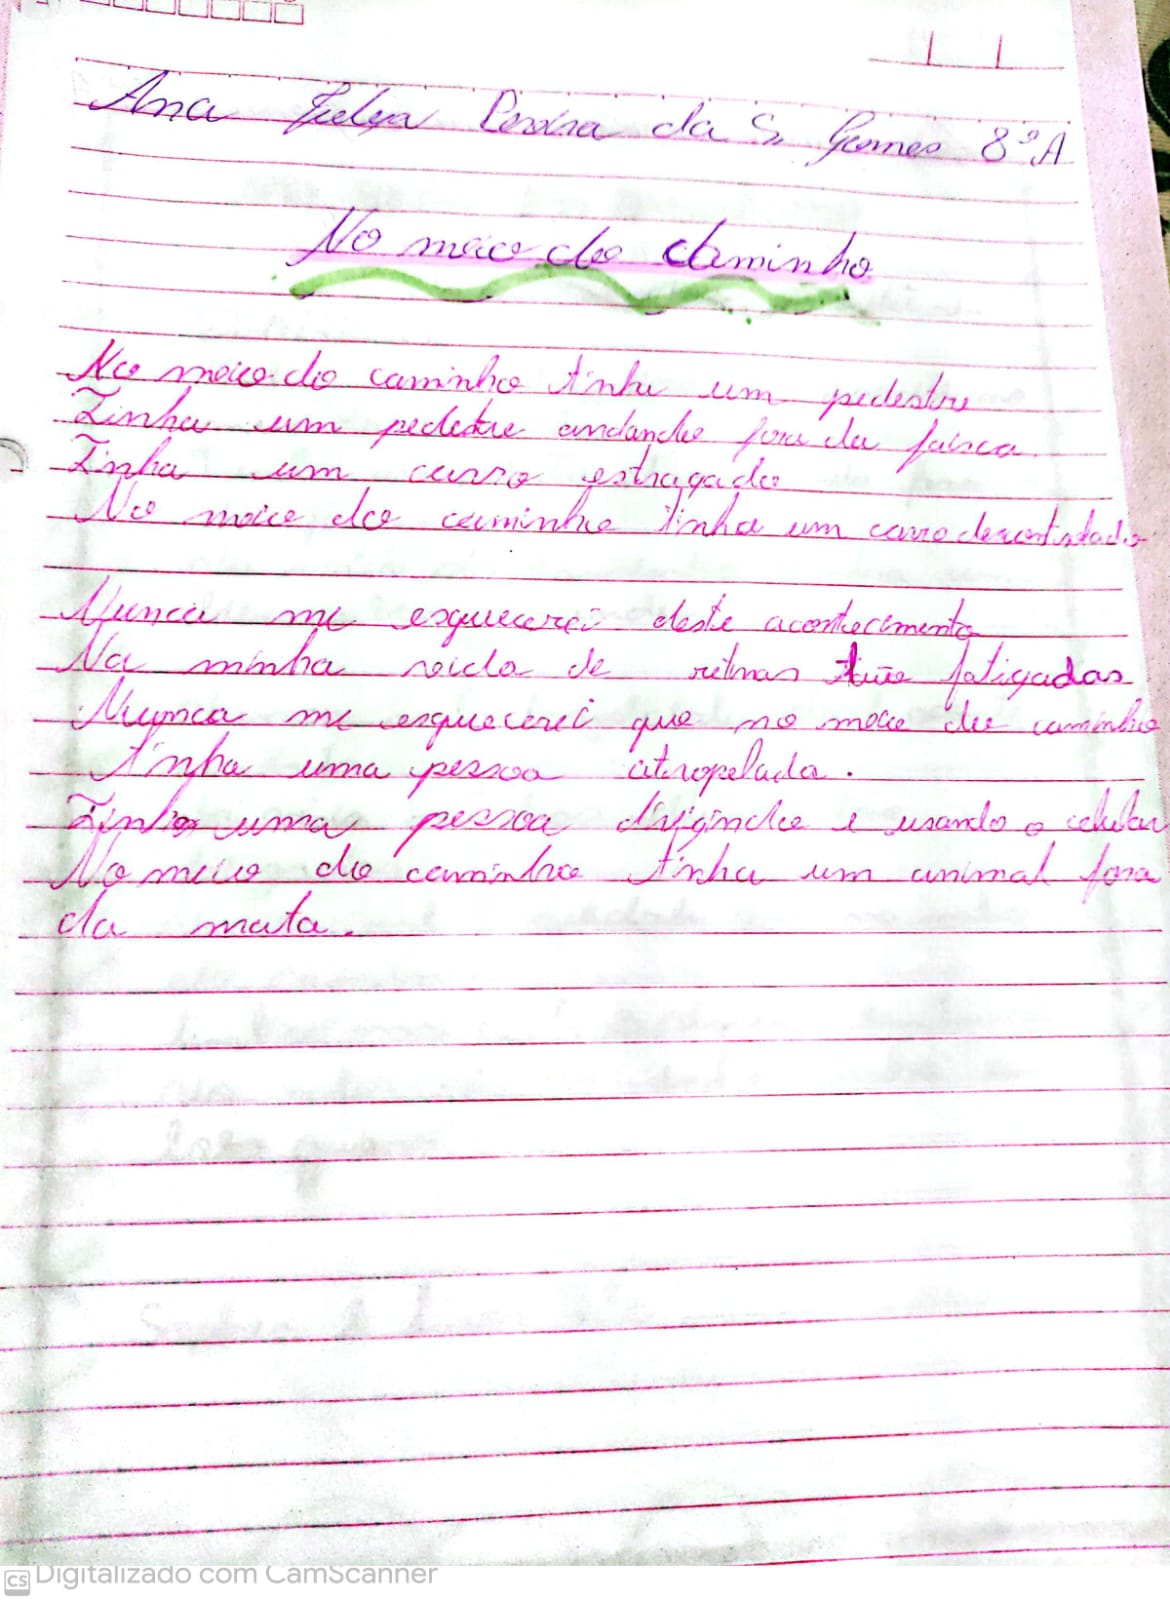 Ana Pereira da S. Gomes 8º A
No meio do Caminho
No meio do caminho tinha um pedestre
Tinha um pedestre andando fora da faisca.
Tinha um carro estragado
No meio do caminho tinha um carro
Nunca me esquecerei deste acontecimento
Na minha vida de retinas tão fatigadas
Nunca me esquecerei que no meio do caminho
tinha uma pessoa atropelada.
Tinha uma pessoa dirigindo e usando o celular
No meio do caminho tinha um animal fora
da mata.
CS Digitalizado com CamScanner